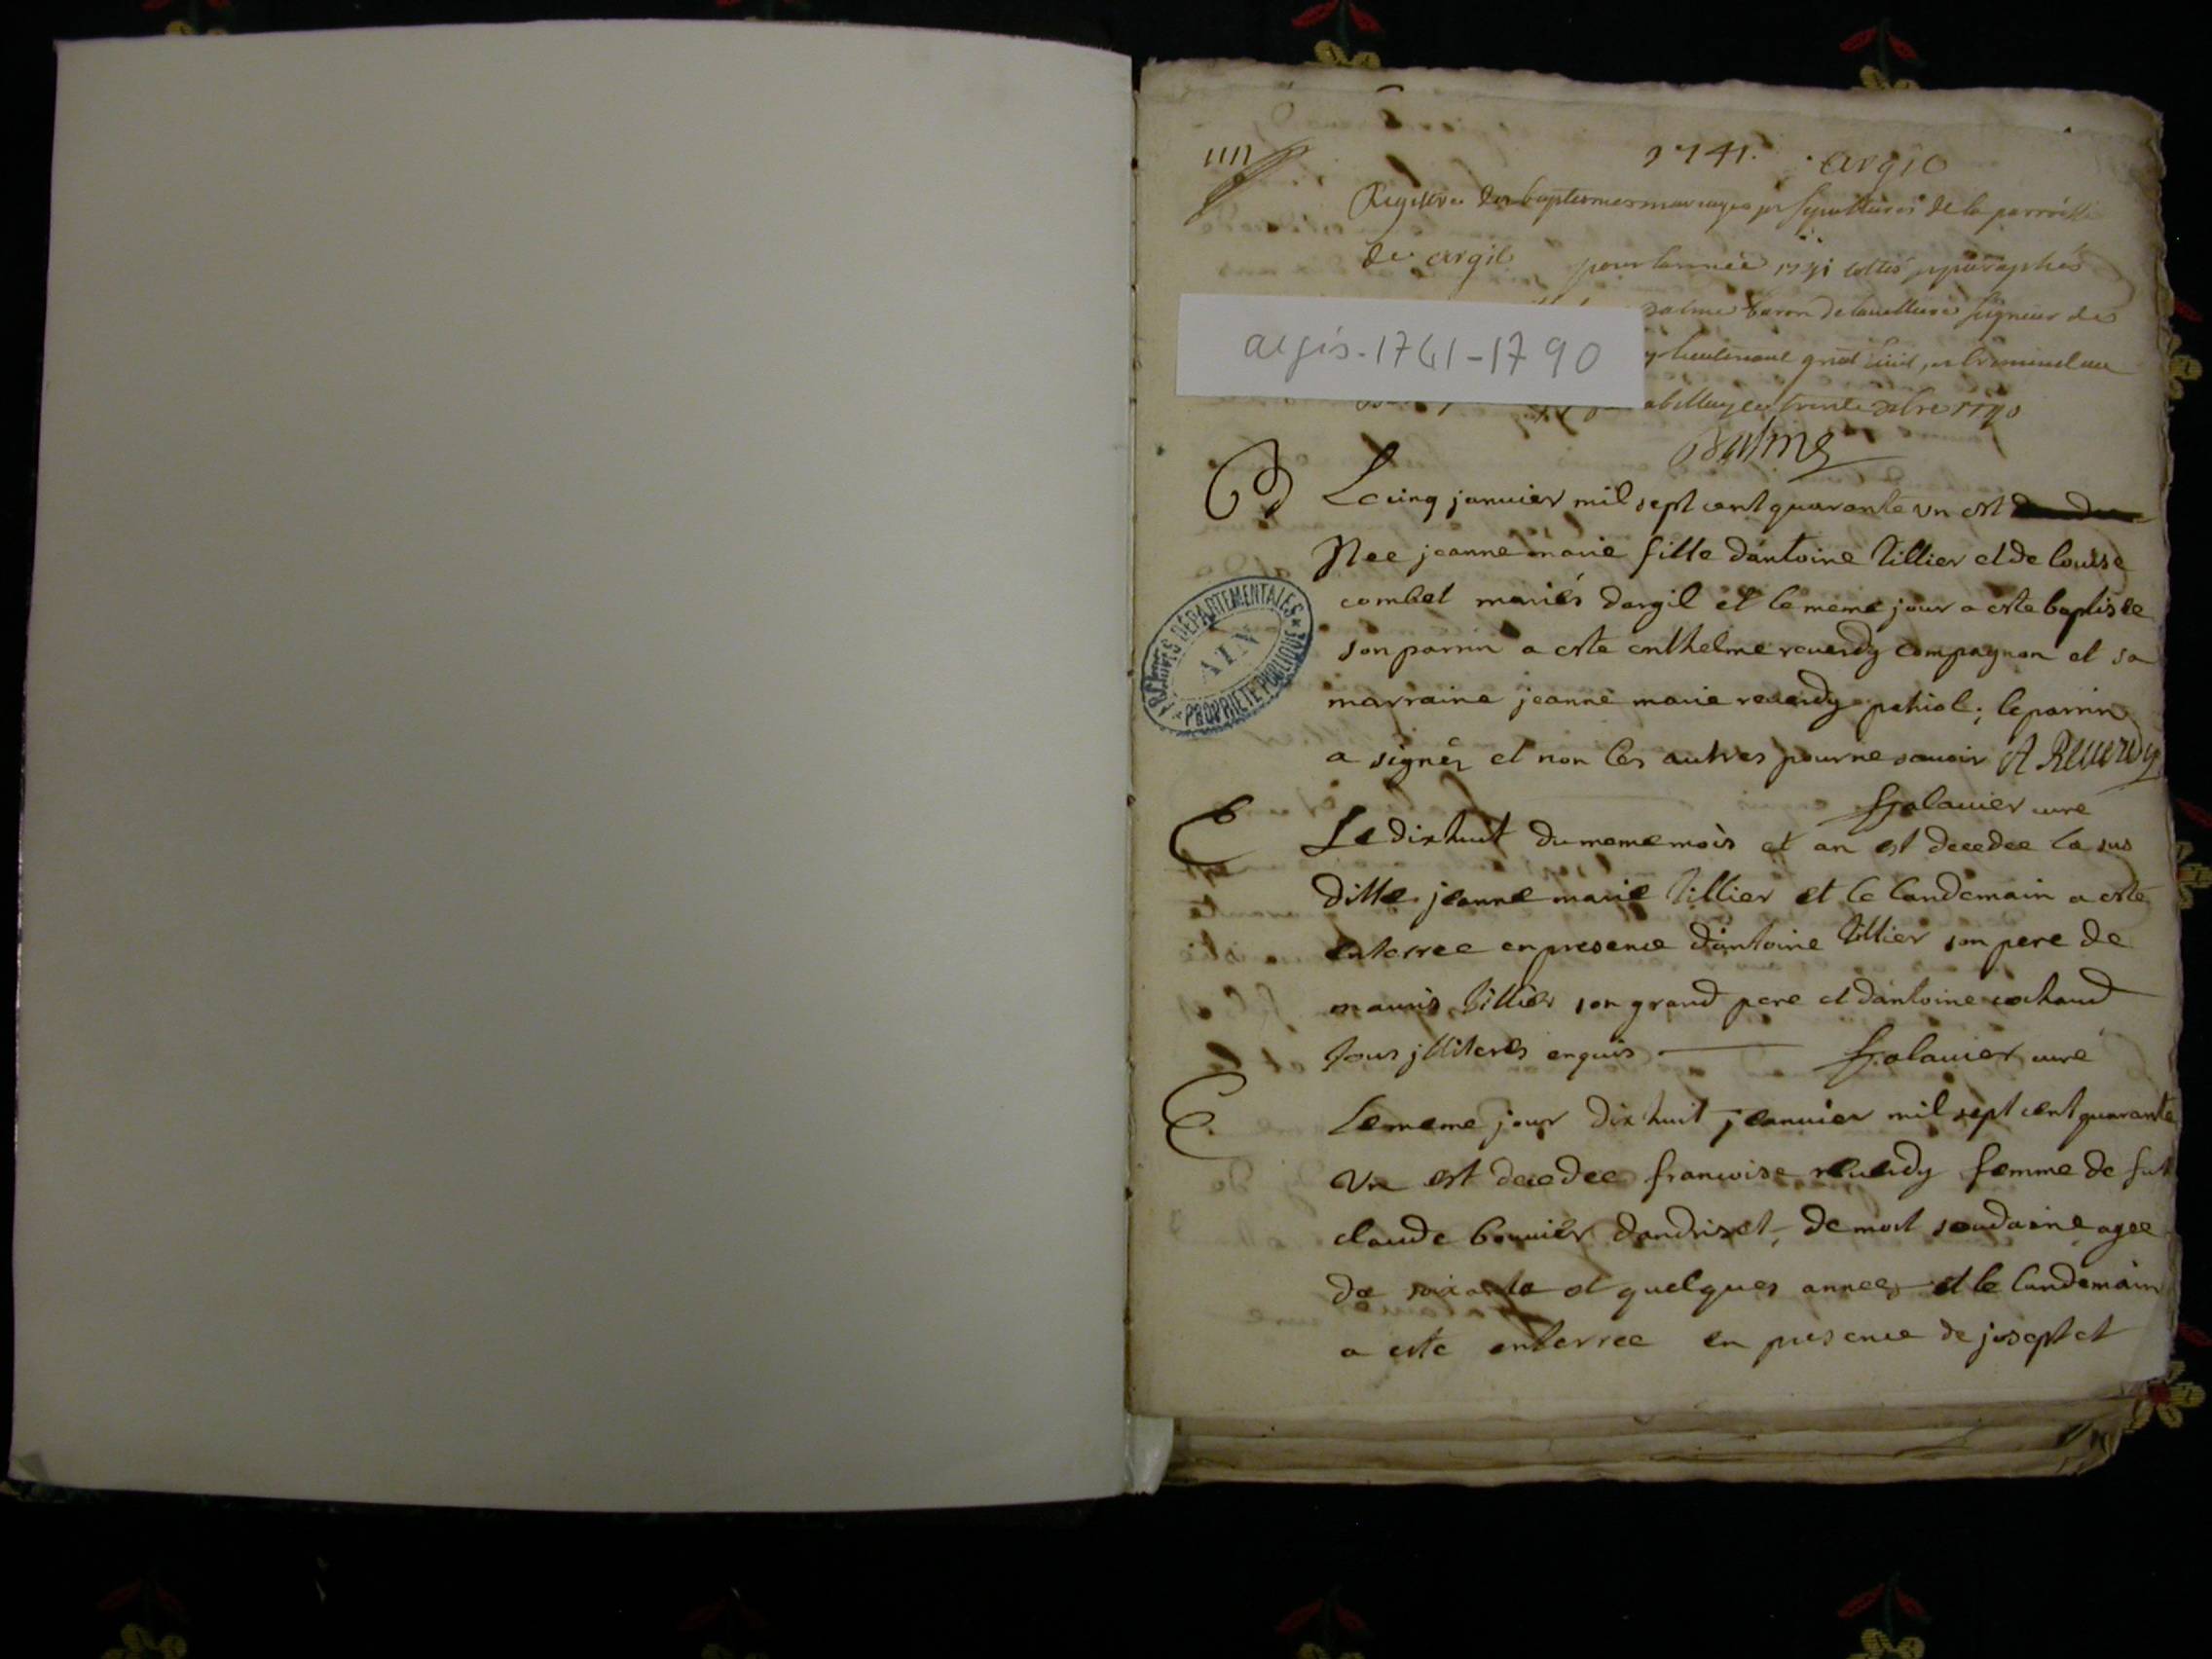 1741. argis
Registre des baptesmes mariages et sepultures de la parroisse
de argil pour l'année 1741 cottés et paraphés
balme baron de seigneur de
lieutenant gnal civil et criminel au
trente xbre 1740
argis. 1741-1790
Balme
ARCHIVES DÉPARTEMENTALES
AIN
PROPRIÉTÉ PUBLIQUE
B Le cinq janvier mil sept cent quarante un est
Nee jeanne marie fille dantoine Tillier et de louise
combet mariés dargil et le meme jour a este baptisée
son parrin a este enthelme reverdy compagnon et sa
marraine jeanne marie reverdy ; le parrin
a signer et non les autres pour ne sauoir A Reverdy
curé
E Le dix huit du meme mois et an est decedee la sus
ditte jeanne marie Tillier et le landemain a esté
enterree en presence dantoine Tillier son pere de
mauris Tillier son grand pere et dantoine cochand
tous jlliterés enquis curé
E Le meme jour dix huit jeanuier mil sept cent quarante
Vn est decedee francoise reverdy femme de fut
claude bouuier dandriset, de mort soudaine agee
de soixante et quelques annees et le landemain
a este enterree en presence de josept et